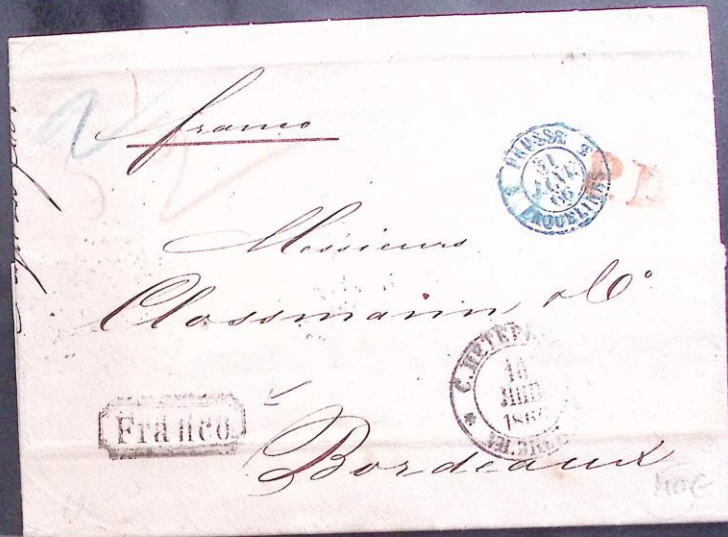 franco
PRUSSE 3
31
JANV.
66
3 ERQUELINES
P.D.
Messieurs
Clossmann & Co
С.ПЕТЕРБ
18
ЯНВ.
186
Franco
Bordeaux
40€